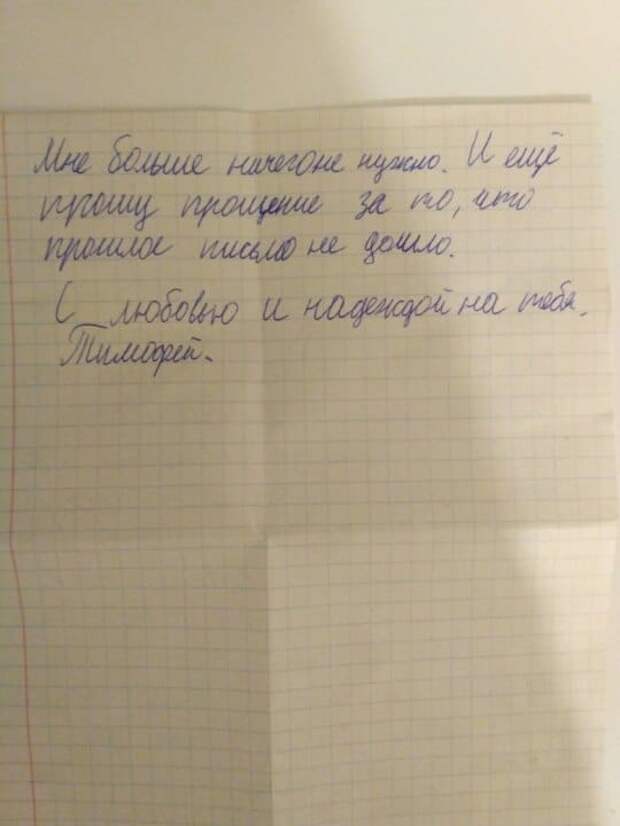 Мне больше начегоне нужно. И ещё
прошу прощение за то, что
прошлое письмо не дошло.
С любовью и надеждой на тебя.
Тимофей.